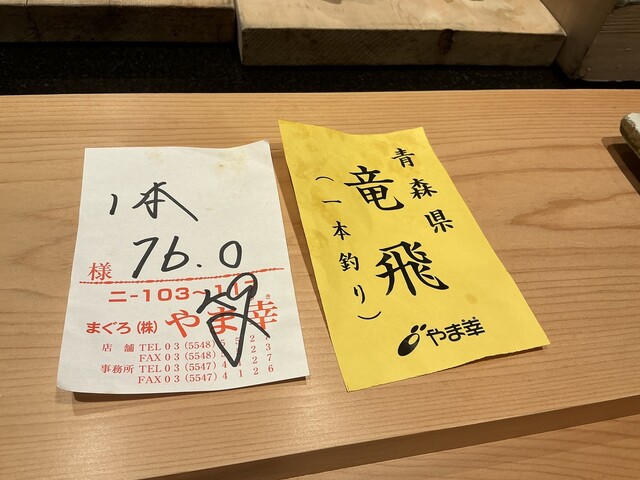 1本
76.0
様
二-103~117
まぐろ(株)やま幸
店舗 TEL03(5548)
FAX03(5548)
事務所 TEL03(5547)
FAX03(5547)4126
青森県
竜飛
(一本釣り)
やま幸